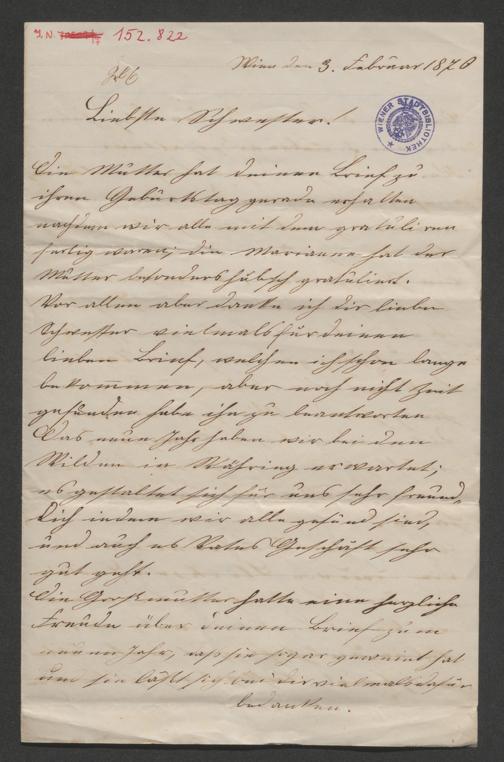 I.N. 152.822
Wien den 3. Februar 1870
Liebste Schwester!
WIENER STADTBIBLIOTHEK
Die Mutter hat deinen Brief zu
ihren Geburtstag gerade erhalten
nachdem wir alle mit dem gratuliren
fertig waren; die Marianne hat der
Mutter besonders hübsch gratuliert.
Vor allen aber danke ich dir liebe
Schwester vielmals für deinen
lieben Brief, welchen ich schon lange
bekommen, aber noch nicht Zeit
gefunden habe ihn zu beantworten
Das neue Jahr haben wir bei den
Wilden in Währing erwartet;
es gestaltet sich für uns sehr freund-
lich indem wir alle gesund sind,
und auch es Vaters Geschäft sehr
gut geht.
Die Großmutter hatte eine herzliche
Freude über deinen Brief zum
neuen Jahr, daß sie sogar geweint hat
und sie läßt sich bei dir vielmals dafür
bedanken.